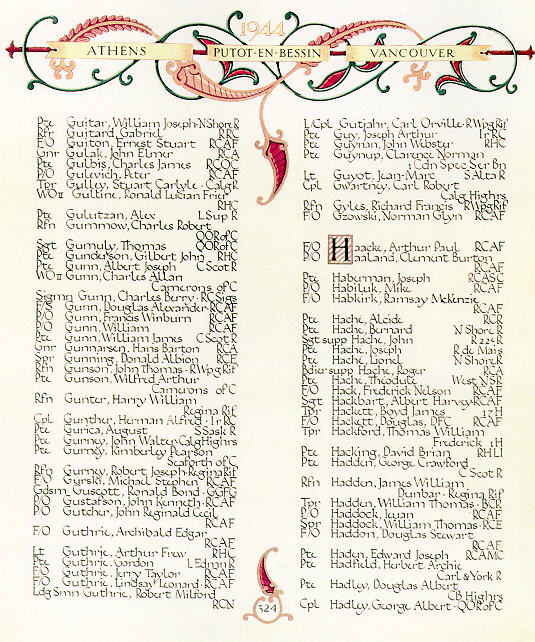 1944
ATHENS
PUTOT-EN-BESSIN
VANCOUVER
Pte Guitar, William Joseph · N Shore R
Rfn Guitard, Gabriel RRC
F/O Guiton, Ernest Stuart RCAF
Gnr Gulak, John Elmer RCA
Pte Gulbis, Charles James RCOC
P/O Gulevich, Peter RCAF
Tpr Gulley, Stuart Carlyle · Calg R
WO II Gulline, Ronald Lucian Friel
RHC
Pte Gulutzan, Alex L Sup R
Rfn Gummow, Charles Robert
QOR of C
Sgt Gumuly, Thomas QOR of C
Pte Gunderson, Gilbert John RHC
Pte Gunn, Albert Joseph C Scot R
WO II Gunn, Charles Allan
Camerons of C
Sigmn Gunn, Charles Berry · RC Sigs
F/S Gunn, Douglas Alexander · RCAF
F/O Gunn, Francis Winburn RCAF
P/O Gunn, William RCAF
Pte Gunn, William James C Scot R
Gnr Gunnarsen, Hans Barton RCA
Spr Gunning, Donald Albion RCE
Rfn Gunson, John Thomas · R Wpg Rif
Pte Gunson, Wilfred Arthur
Camerons of C
Rfn Gunter, Harry William
Regina Rif
Cpl Gunther, Herman Alfred · Ir RC
Pte Gurica, August S Sask R
Pte Gurney, John Walter · Calg Highrs
Pte Gurney, Kimberley Pearson
Seaforth of C
Rfn Gurney, Robert Joseph · Regina Rif
F/O Gurski, Michael Stephen RCAF
Gdsm Guscott, Ronald Bond · GGFG
P/O Gustafson, John Kenneth · RCAF
P/O Gutcher, John Reginald Cecil
RCAF
F/O Guthrie, Archibald Edgar
RCAF
Lt Guthrie, Arthur Frew RHC
Pte Guthrie, Gordon L Edmn R
F/O Guthrie, Jerry Taylor RCAF
F/O Guthrie, Lindsay Leonard · RCAF
Ldg Smn Guthrie, Robert Milford
RCN
L/Cpl Gutjahr, Carl Orville · R Wpg Rif
Pte Guy, Joseph Arthur Ir RC
Pte Guynan, John Webster RHC
Pte Guynup, Clarence Norman
1 Cdn Spec Ser Bn
Lt Guyot, Jean-Marc S Alta R
Cpl Gwartney, Carl Robert
Calg Highrs
Rfn Gyles, Richard Francis R Wpg Rif
F/O Gzowski, Norman Glyn RCAF
F/O Haacke, Arthur Paul RCAF
P/O Haaland, Clement Burton
RCAF
Pte Haberman, Joseph RCASC
P/O Habiluk, Mike RCAF
F/O Habkirk, Ramsay McKenzie
RCAF
Pte Haché, Alcide RCR
Pte Haché, Bernard N Shore R
Sgt supp Haché, John R 22e R
Pte Haché, Joseph R de Mais
Pte Haché, Lionel N Shore R
Bdier supp Haché, Roger RCA
Pte Haché, Theodute West NSR
F/O Hack, Frederick Nelson RCAF
Sgt Hackbart, Albert Harvey · RCAF
Tpr Hackett, Boyd James 17 H
F/O Hackett, Douglas, DFC RCAF
Tpr Hackford, Thomas William
Frederick 1H
Pte Hacking, David Brian RHLI
Pte Hadden, George Crawford
C Scot R
Rfn Hadden, James William
Dunbar · Regina Rif
Tpr Hadden, William Thomas · BCR
P/O Haddock, Juan RCAF
Spr Haddock, William Thomas · RCE
F/O Haddon, Douglas Stewart
RCAF
Pte Haden, Edward Joseph RCAMC
Pte Hadfield, Herbert Archie
Carl & York R
Pte Hadley, Douglas Albert
CB Highrs
Cpl Hadley, George Albert · QOR of C
324